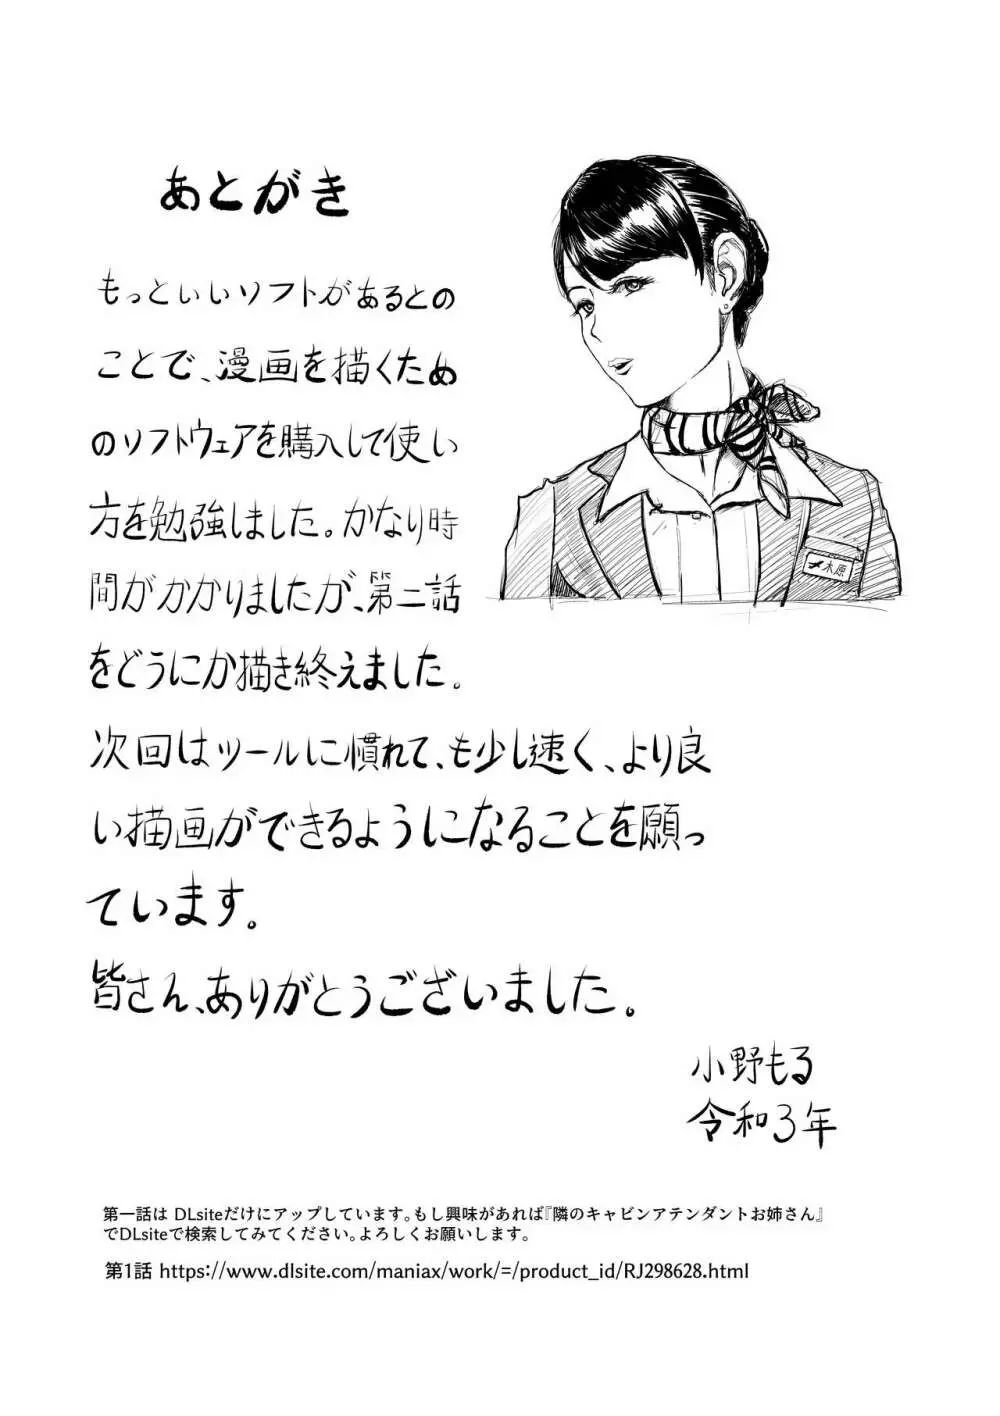 あとがき
もっといいソフトがあるとの
ことで、漫画を描くため
のソフトウェアを購入して使い
方を勉強しました。かなり時
間がかかりましたが、第二話
をどうにか描き終えました。
次回はツールに慣れて、も少し速く、より良
い描画ができるようになることを願っ
ています。
皆さん、ありがとうございました。
小野もる
令和3年
木原
第一話は DLsiteだけにアップしています。もし興味があれば『隣のキャビンアテンダントお姉さん』
でDLsiteで検索してみてください。よろしくお願いします。
第1話 https://www.dlsite.com/maniax/work/=/product_id/RJ298628.html